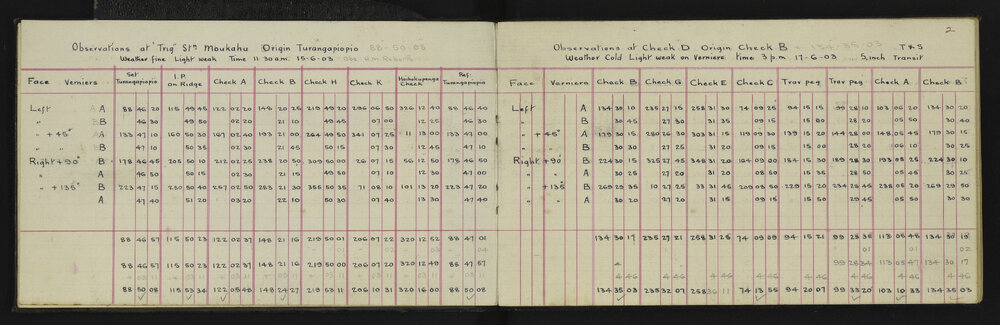 Observations at "Trig" Stn Moukahu Origin Turangapiopio 88-50-08
Weather fine Light weak Time 11 30 a.m. 15-6-03
Face Verniers Set Turangapiopio I.P. on Ridge Check A Check B Check H Check K Hochokupenga Check Ref. Turangapiopio
Left A 88 46 20 115 49 45 122 02 20 148 20 25 219 49 20 296 06 50 326 12 40 88 46 40
" B 46 30 49 50 02 20 21 10 49 45 07 00 12 25 46 30
" +45° A 133 47 10 160 50 30 167 02 40 193 21 00 264 49 50 341 07 25 11 13 00 133 47 00
" " B 47 10 50 35 02 30 21 45 50 15 07 30 12 45 47 10
Right +90° B 178 46 45 205 50 10 212 02 25 238 20 50 309 50 00 26 07 15 56 12 50 178 46 50
" A 46 50 50 15 02 30 21 15 49 50 07 10 12 30 47 00
" +135° B 223 47 15 250 50 40 257 02 50 283 21 30 355 50 35 71 08 10 101 13 20 223 47 20
A 47 40 51 20 03 20 22 10 50 30 07 40 13 30 47 40
88 46 57 115 50 23 122 02 37 148 21 16 219 50 01 206 07 22 320 12 52 88 47 01
88 46 57 115 50 23 122 02 37 148 21 16 219 50 00 206 07 20 320 12 49 88 46 57
88 50 08 115 53 34 122 05 48 148 24 27 219 53 11 206 10 31 320 16 00 88 50 08
2
Observations at Check D Origin Check B 134-35-03 T & S
Weather Cold Light weak on Verniers. time 3 p.m 17-6-03 5 inch Transit
Face Verniers Check B Check G Check E Check C Trav peg Trav peg Check A. Check B
Left A 134 30 10 235 27 15 258 31 30 74 09 25 94 15 15 99 28 10 103 06 20 134 30 20
" B 30 45 27 30 31 35 09 15 15 00 28 20 05 50 30 40
" +45° A 179 30 15 280 26 30 303 31 15 119 09 30 139 15 20 144 28 00 148 05 45 179 30 15
" " B 30 30 27 25 31 20 09 15 15 00 28 20 06 10 30 25
Right +90° B 224 30 15 325 27 45 348 31 20 164 09 00 184 15 30 189 28 30 193 05 25 224 30 10
" " A 30 25 27 20 31 20 08 50 15 35 28 50 05 45 30 25
" +135° B 269 29 35 10 27 25 33 31 45 209 08 50 229 15 20 234 29 45 238 05 20 269 29 50
" " A 30 20 27 20 31 15 09 15 15 50 29 45 05 50 30 30
134 30 17 235 27 21 258 31 25 74 09 09 94 15 21 99 28 35 113 05 48 134 30 19
01 01 02
99 28 34 113 05 47 134 30 17
4 46 4 46 4 46 4 46 4 46 4 46 4 46 4 46
134 35 03 235 32 07 258 36 11 74 13 55 94 20 07 99 33 20 103 10 33 134 35 03